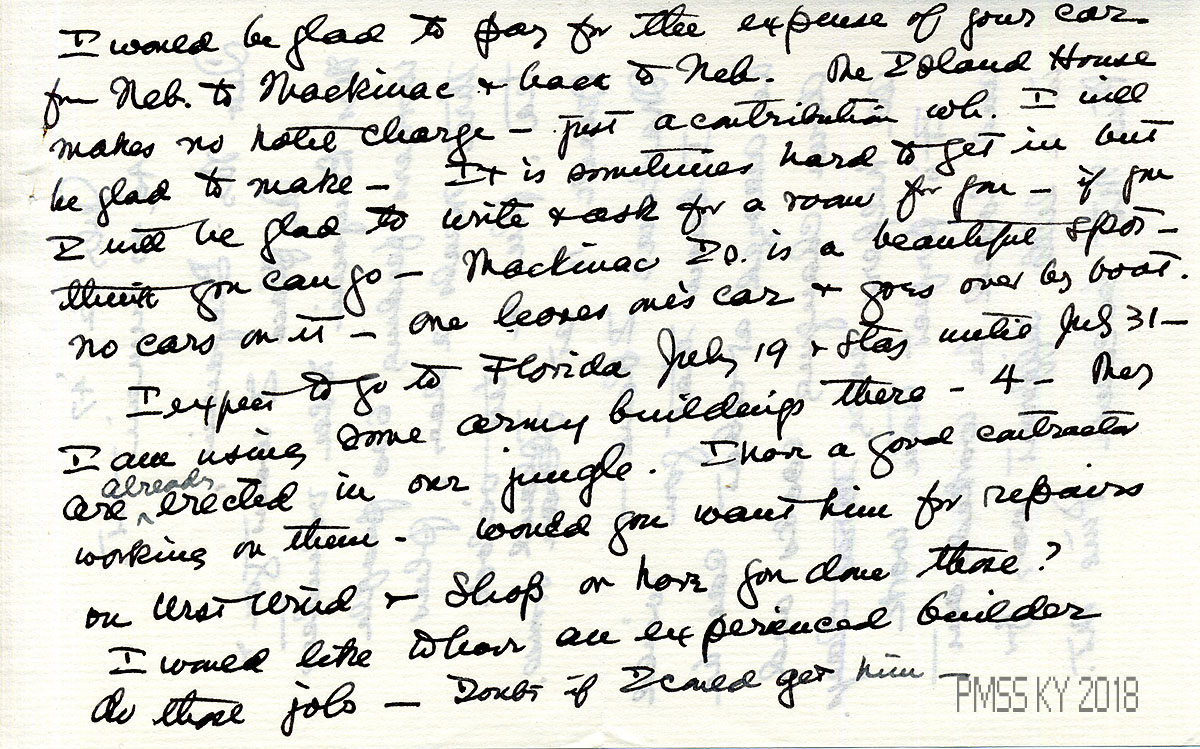 I would be glad to pay for the expense of your car
from Neb. to Mackinac & back to Neb. The Island House
makes no hotel charge – just a contribution wh. I will
be glad to make – It is sometimes hard to get in but
I will be glad to write & ask for a room for you – if you
think you can go – Mackinac Is. is a beautiful spot –
no cars on it – one leaves one's car & goes over by boat.
I expect to go to Florida July 19 & stay until July 31 –
I am using some army buildings there – 4 – They
are already erected in our jungle. I have a good contractor
working on them – would you want him for repairs
on West Wind & Shop or have you done those?
I would like to have an experienced builder
do those jobs – Doubt if I could get him –
PMSS KY 2018